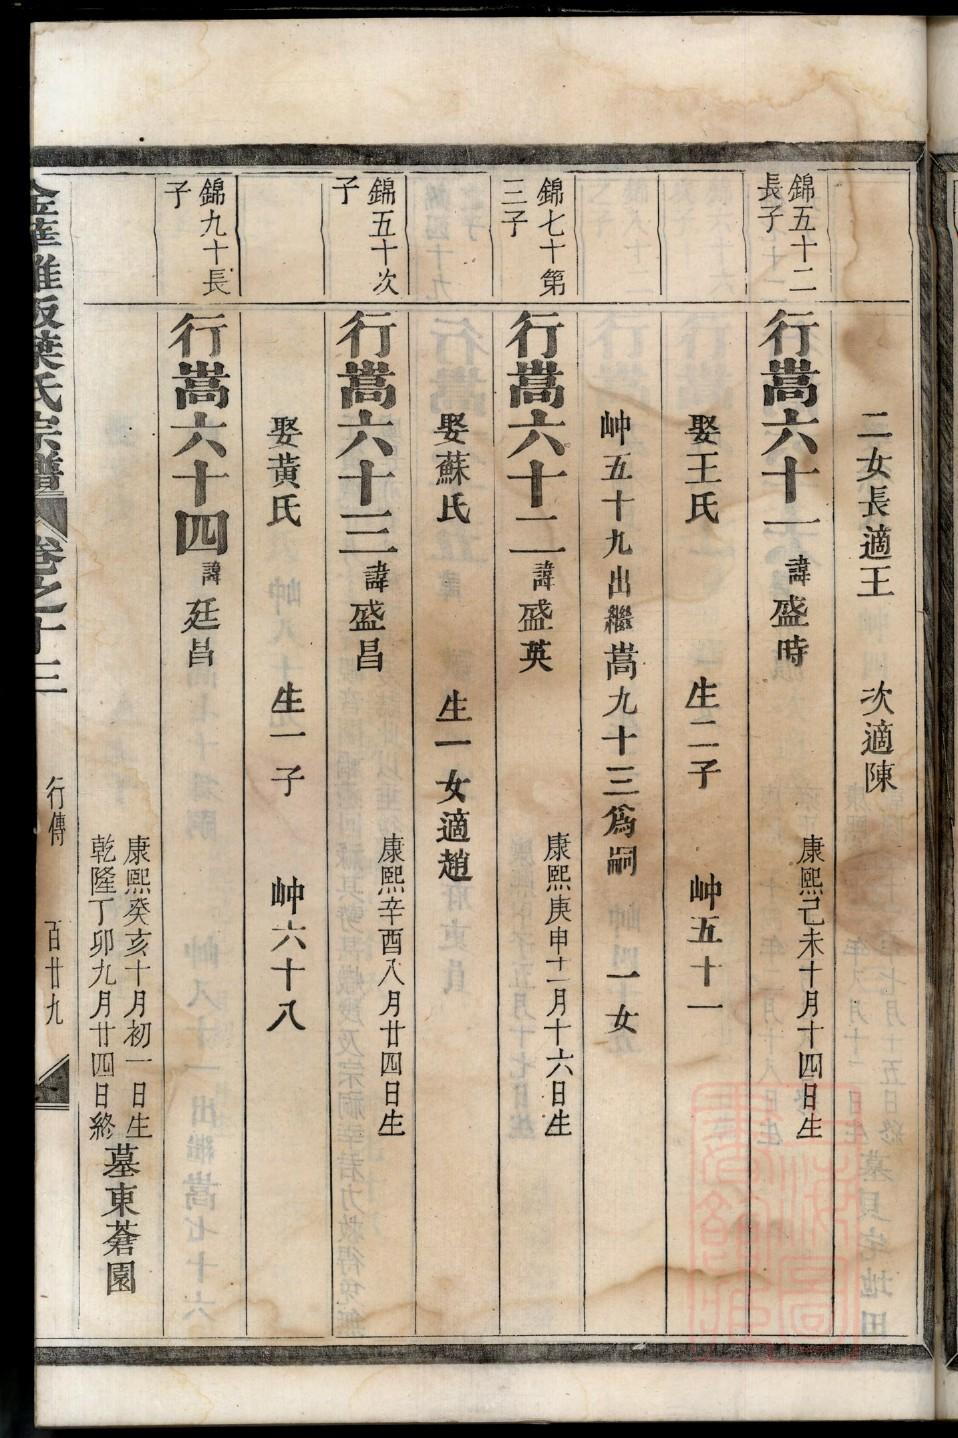 二女長適王　次適陳
錦五十二長子
行嵩六十一　諱盛時　康熙己未十月十四日生
娶王氏　生二子　𡶶五十一
𡶶五十九出繼嵩九十三為嗣　一女
錦七十第三子
行嵩六十二　諱盛英　康熙庚申十一月十六日生
娶蘇氏　生一女適趙
錦五十次子
行嵩六十三　諱盛昌　康熙辛酉八月廿四日生
娶黃氏　生一子　𡶶六十八
錦九十長子
行嵩六十四　諱廷昌
康熙癸亥十月初一日生
乾隆丁卯九月廿四日終
墓東蒼園
金華　葉氏宗譜　卷之十三　行傳　百廿九